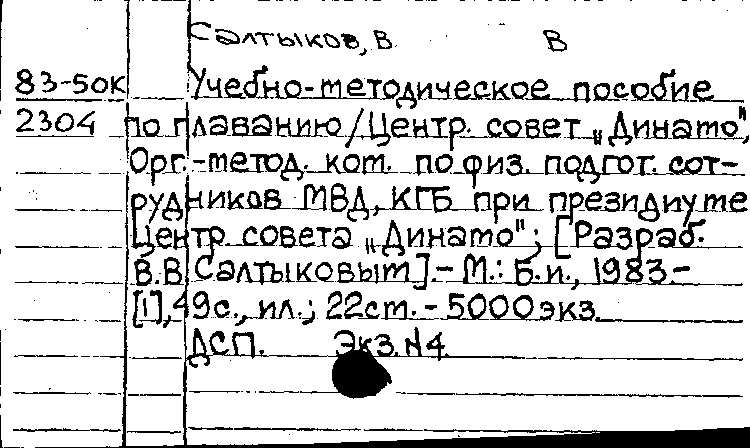 Салтыков, В. В
83-50К Учебно-методическое пособие
2304 по плаванию/Центр. совет „Динамо",
Орг.-метод. ком. по физ. подгот. сот-
рудников МВД, КГБ при президиуме
Центр. совета „Динамо"; [Разраб.
В.В. Салтыковым].- М.: Б.и., 1983.-
[1], 49с., ил.; 22см. - 5000экз.
ДСП. Экз. №4.